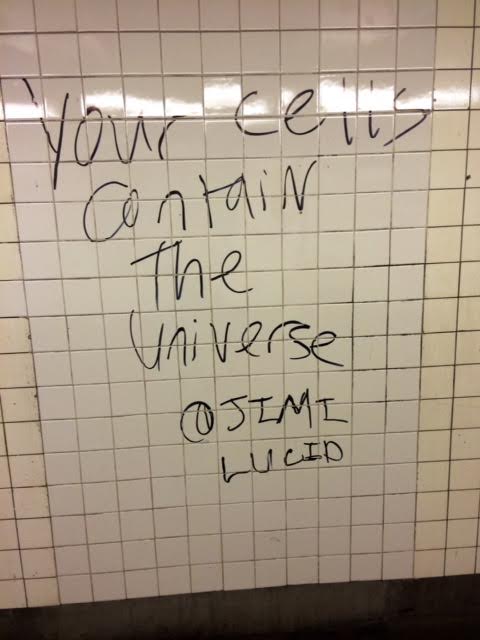 Your cells
contain
The
universe
@JIMI
LUCID